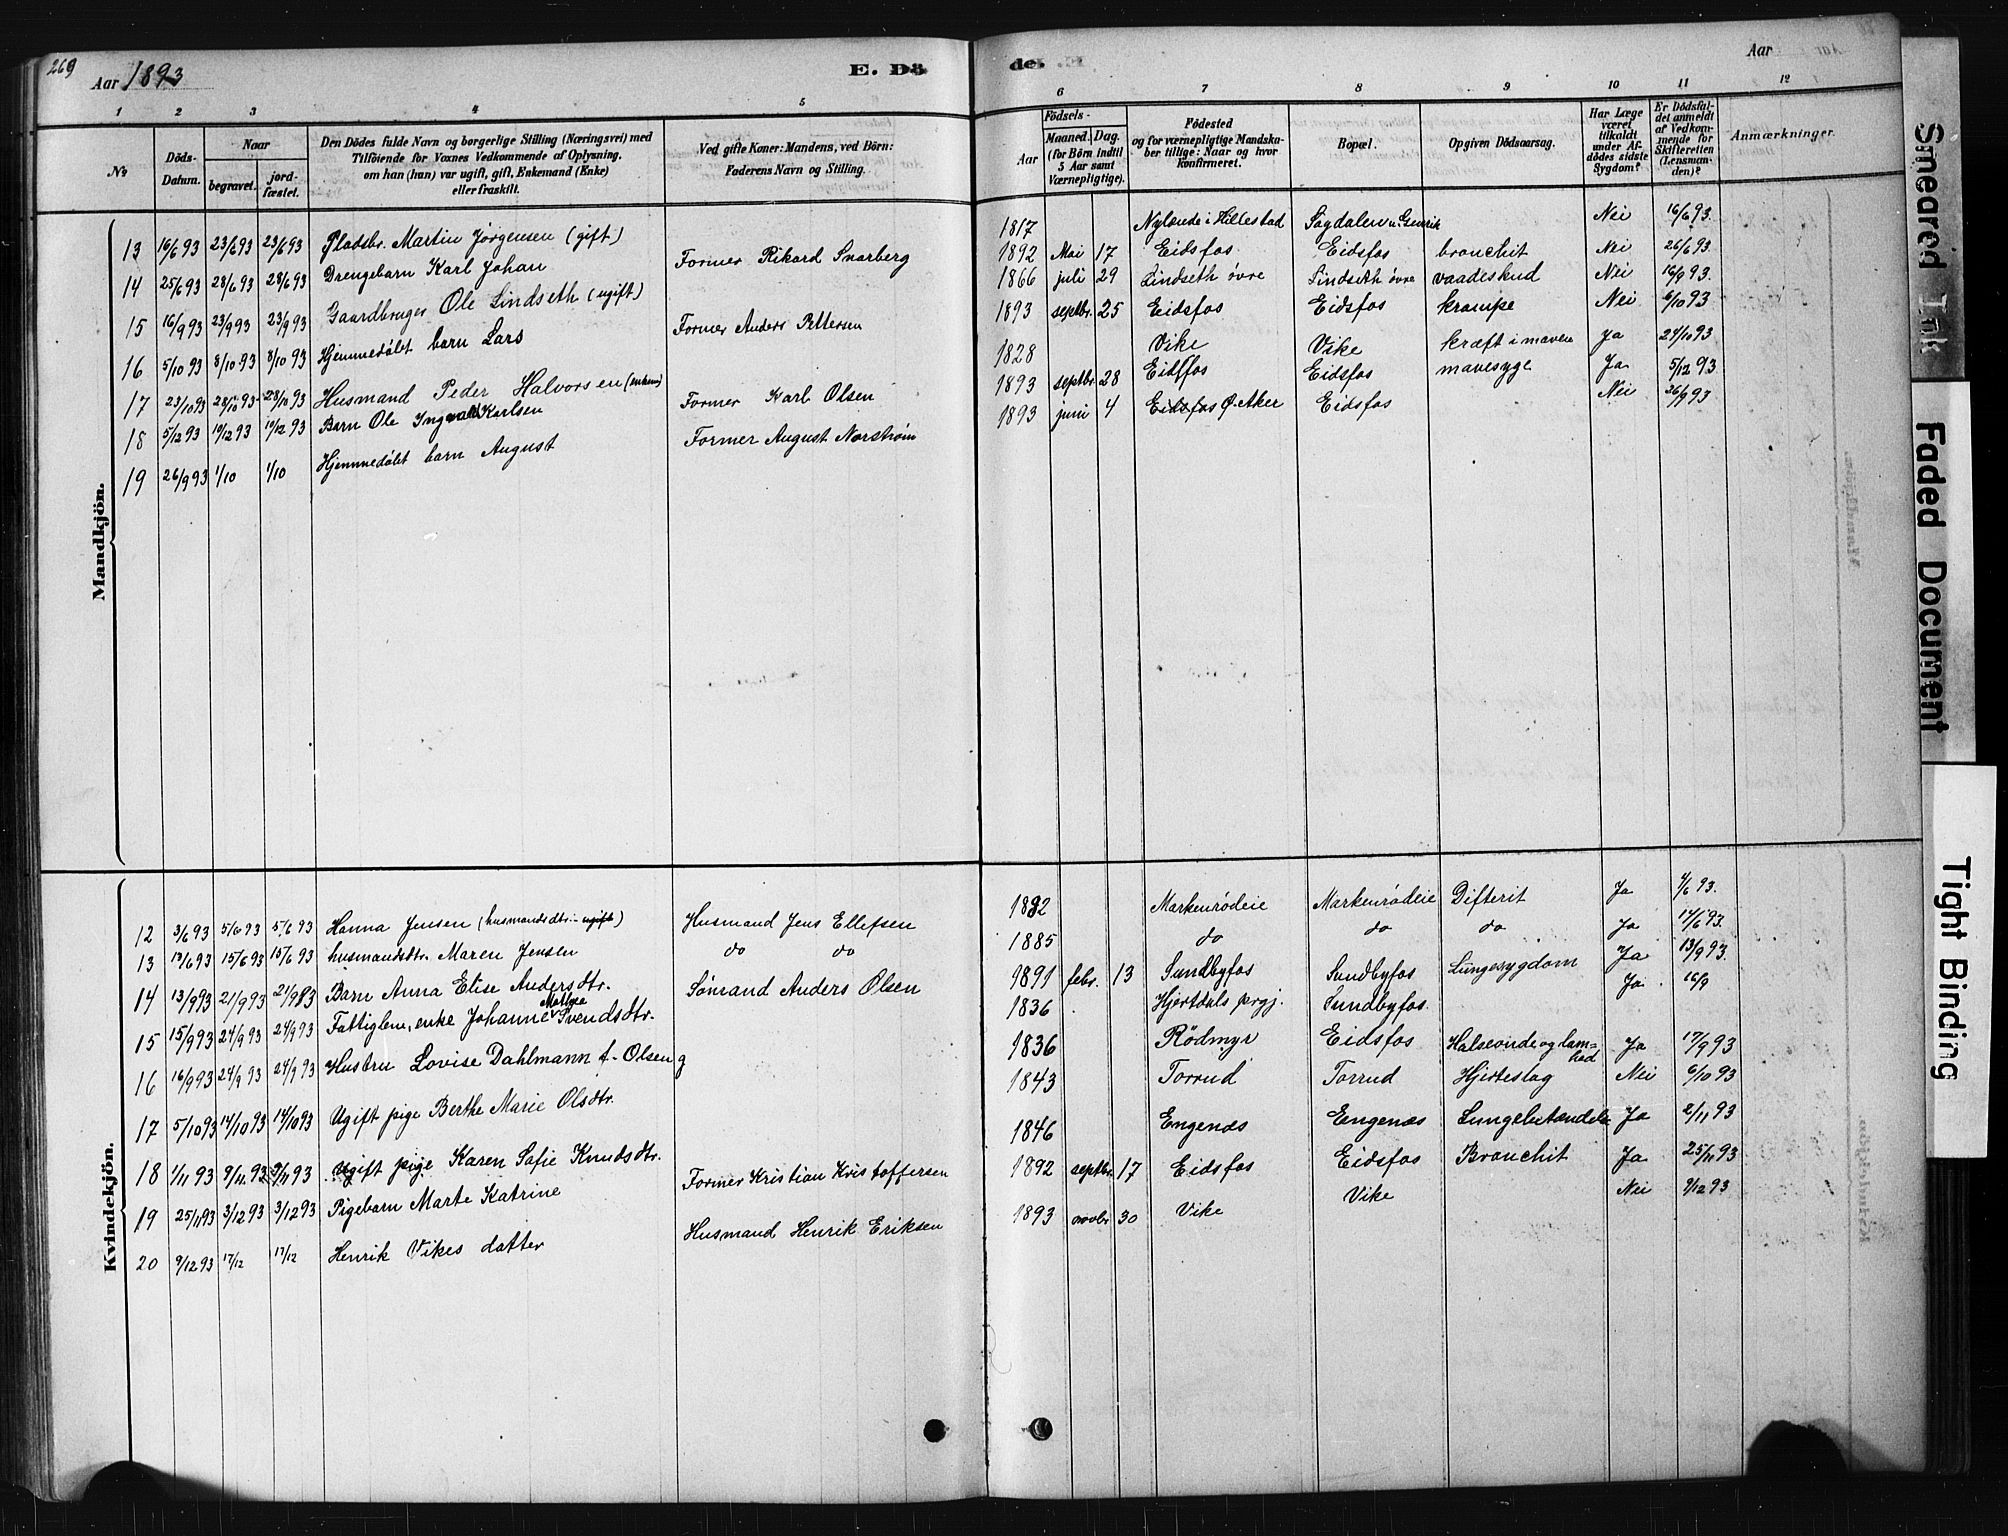 269
Aar 1893
E. Dö
de.
Aar
1 2 3 4 5 6 7 8 9 10 11 12
No
Döds-Datum.
Naar
begravet. jord-fæstet.
Den Dödes fulde Navn og borgerlige Stilling (Næringsvei) med
Tilföiende for Voxnes Vedkommende af Oplysning,
om han (hun) var ugift, gift, Enkemand (Enke)
eller fraskilt.
Ved gifte Koner: Mandens, ved Börn:
Faderens Navn og Stilling.
Födsels-
Aar
Maaned. Dag.
(for Börn indtil
5 Aar samt
Værnepligtige).
Födested
og for værnepligtige Mandska-
ber tillige: Naar og hvor
konfirmeret.
Bopæl.
Opgiven Dödsaarsag.
Har Læge
været
tilkaldt
under Af-
dödes sidste
Sygdom?
Er Dödsfal-
det anmeldt
af Vedkom-
mende for
Skifteretten
(Lensman-
den)?
Anmærkninger.
Mandkjön.
13 16/6 93 23/6 93 23/6 93 Pladsbr. Martin Jørgensen (gift) 1817 Nylænde i Hillestad Sagdalen u. Nei 16/6 93.
14 25/6 93 28/6 93 28/6 93 Drengebarn Karl Johan Former Rikard Snarberg 1892 Mai 17 Eidsfos Eidsfos bronchit Nei 26/6 93
15 16/9 93 23/9 93 23/9 93 Gaardbruger Ole Lindseth (ugift) 1866 juli 29 Lindseth øvre Lindseth øvre vaadeskud Nei 16/9 93
16 5/10 93 8/10 93 8/10 93 Hjemmedøbt barn Lars Former Anders Pettersen 1893 septbr. 25 Eidsfos Eidsfos krampe Nei 6/10 93
17 23/10 93 28/10 93 28/10 93 Husmand Peder Halvorsen (enkem) 1828 Vike Vike kræft i maven Ja 24/10 93
18 5/12 93 10/12 93 10/12 93 Barn Ole Ingvald Karlsen Former Karl Olsen 1893 septbr. 28 Eidsfos Eidsfos mavesyge Ja 5/12 93
19 26/9 93 1/10 1/10 Hjemmedøbt barn August Former August Norstrøm 1893 juni 4 Eidsfos Ø. Aker Eidsfos Nei 26/9 93
Kvindekjön.
12 3/6 93 5/6 93 5/6 93 Hanna Jensen (husmandsdtr. ugift) Husmand Jens Ellefsen 1882 Markenrødeie Markenrødeie Difterit Ja 4/6 93.
13 13/6 93 15/6 93 15/6 93 husmandsdtr. Maren Jensen do do 1885 do do do Ja 14/6 93.
14 13/9 93 21/9 93 21/9 83 Barn Anna Elise Andersdtr. Sømand Anders Olsen 1891 febr. 13 Sundbyfos Sundbyfos Lungesygdom Ja 13/9 93.
15 15/9 93 24/9 93 24/9 93 Fattiglem, enke Johanne Mathea Svendsdtr. 1836 Hjertdals prgj. Sundbyfos Ja 16/9
16 16/9 93 24/9 93 24/9 93 Hustru Lovise Dahlmann f. Olsen g 1836 Rødmyr Eidsfos Halseonde og lamhed Ja 17/9 93
17 5/10 93 14/10 93 14/10 93 Ugift pige Berthe Marie Olsdtr. 1843 Torrud Torrud Hjerteslag Nei 6/10 93
18 1/11 93 9/11 93 9/11 93 Ugift pige Karen Sofie Knudsdtr. 1846 Engenæs Engenæs Lungebetændelse Ja 2/11 93
19 25/11 93 3/12 93 3/12 93 Pigebarn Marte Katrine Former Kristian Kristoffersen 1892 septbr. 17 Eidsfos Eidsfos Bronchit Ja 25/11 93
20 9/12 93 17/12 17/12 Henrik Vikes datter Husmand Henrik Eriksen 1893 novbr 30 Vike Vike Nei 9/12 93
Smeared Ink
Faded Document
Tight Binding